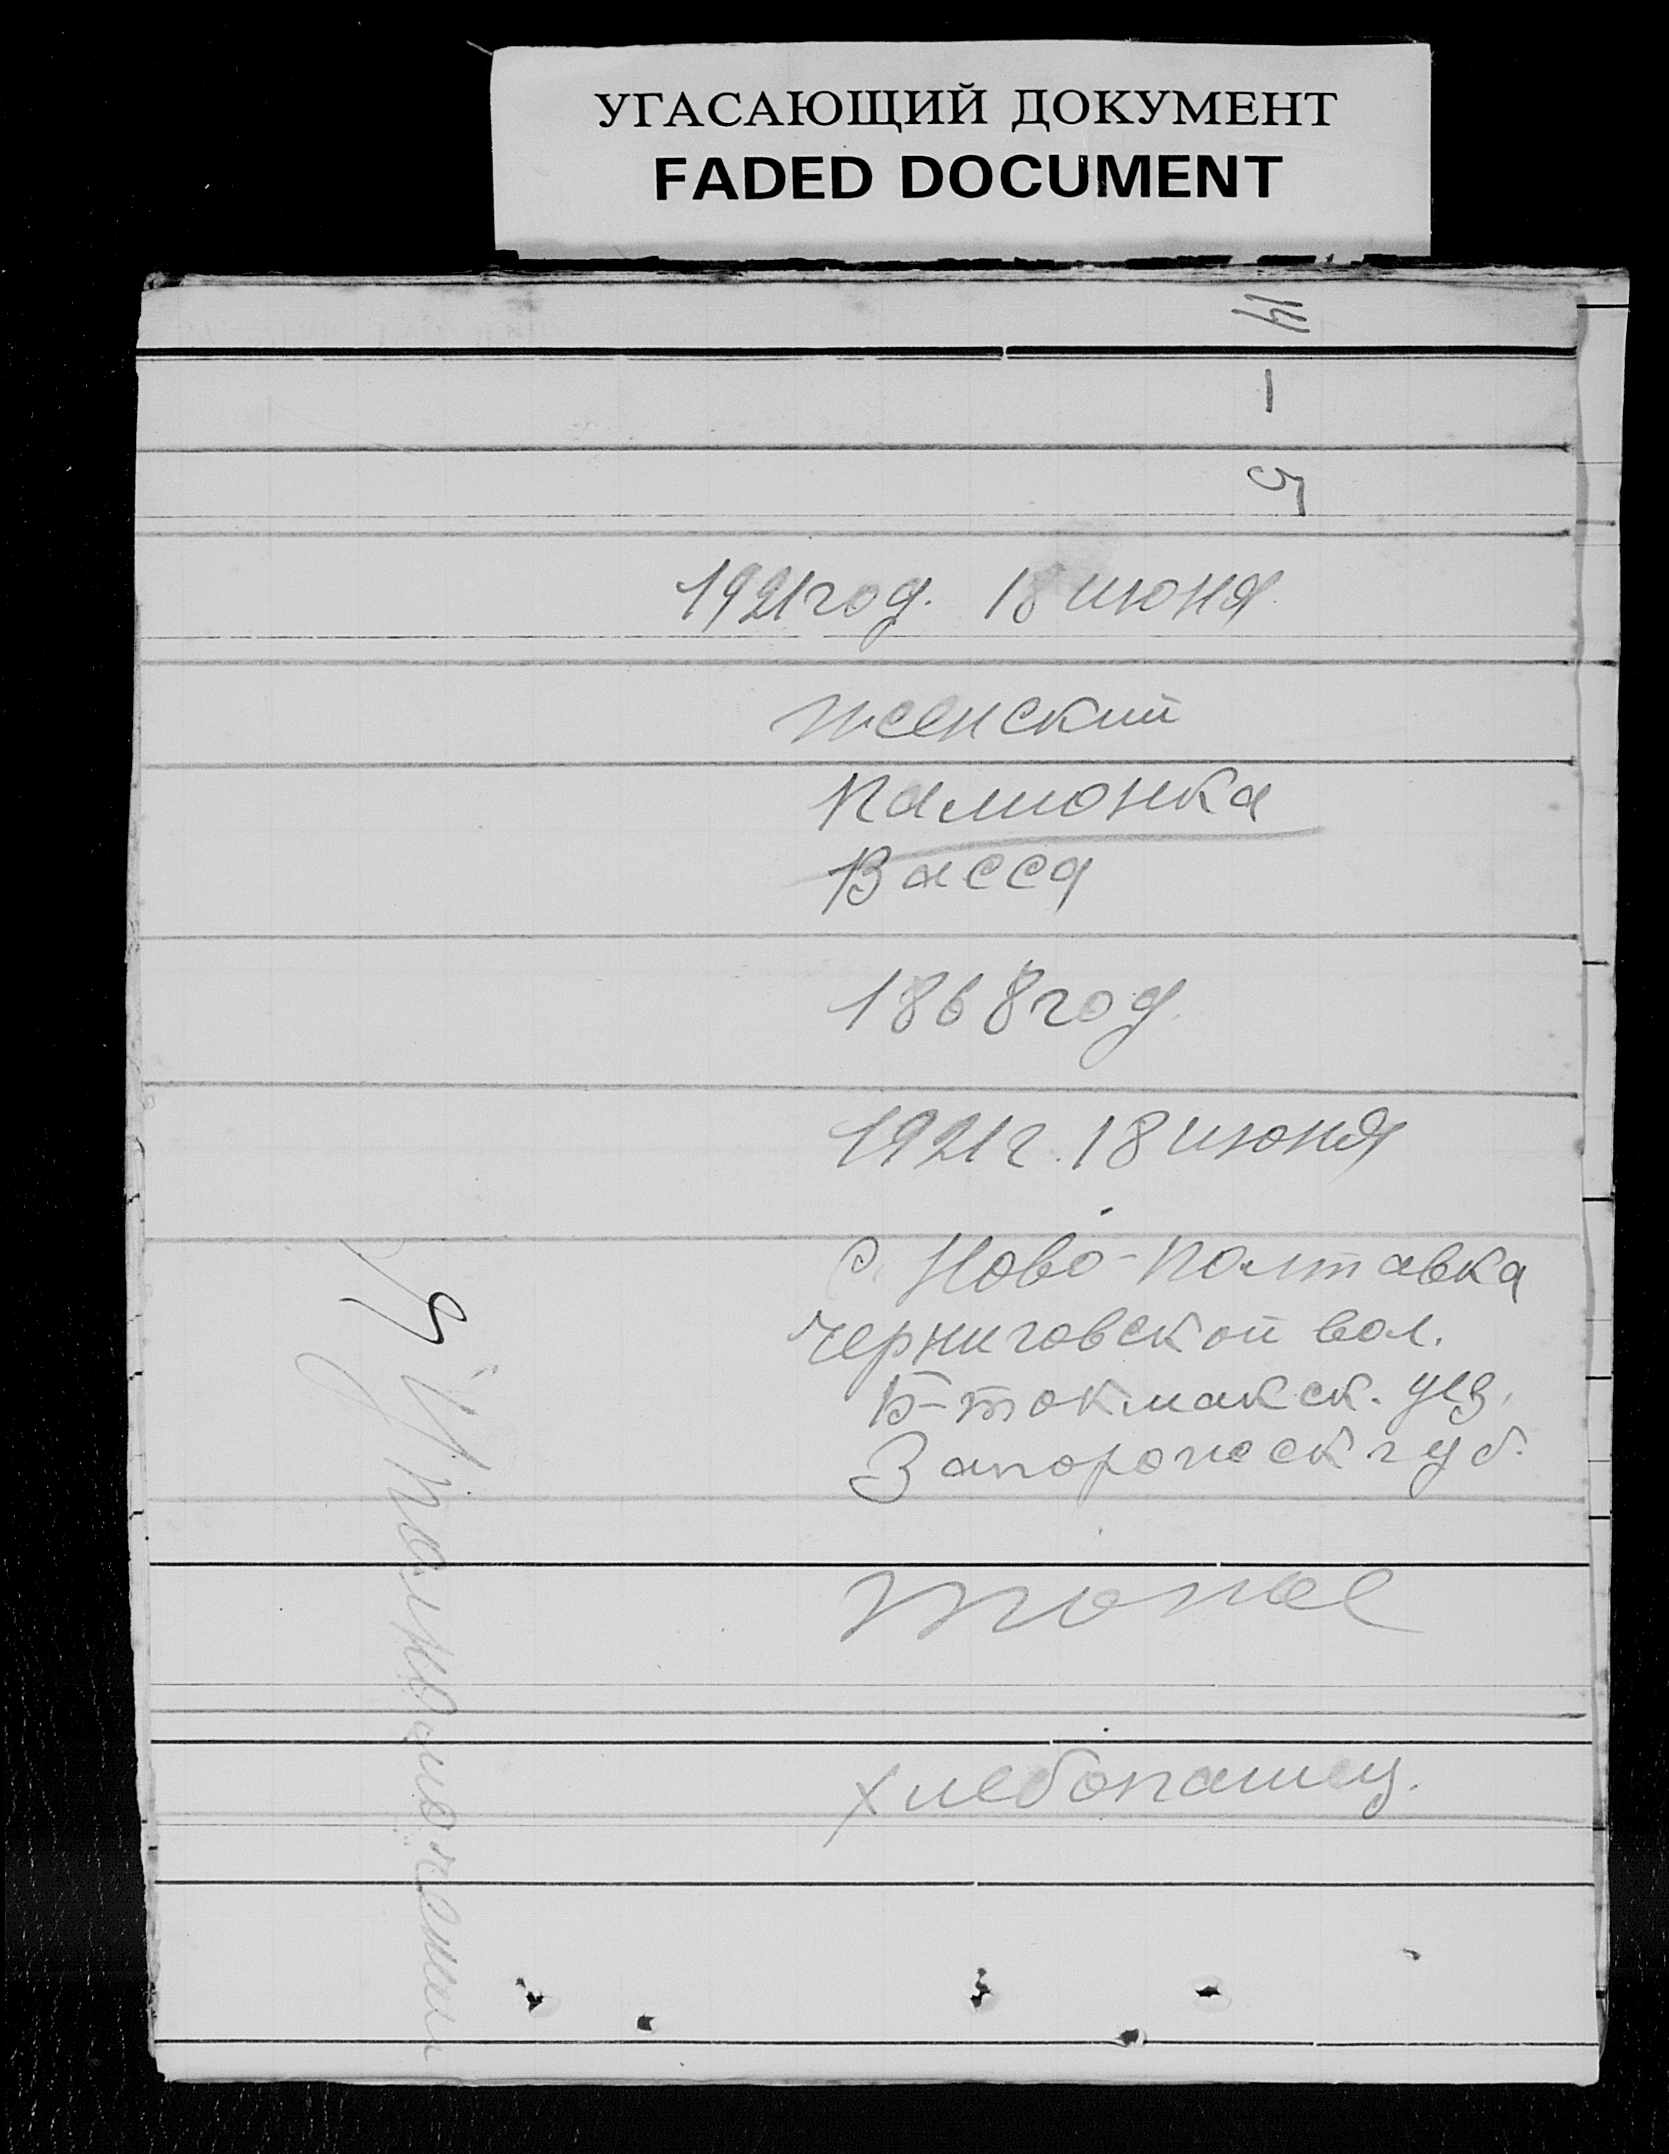 УГАСАЮЩИЙ ДОКУМЕНТ
FADED DOCUMENT
14
1921 год. 18 июня
женский
Палионка
Васса
1868 год
1921 г. 18 июня
с. Ново-Полтавка
Черниговской вол.
Б-токмакск. уез.
Запорожск губ.
тоже
хлебопашец.